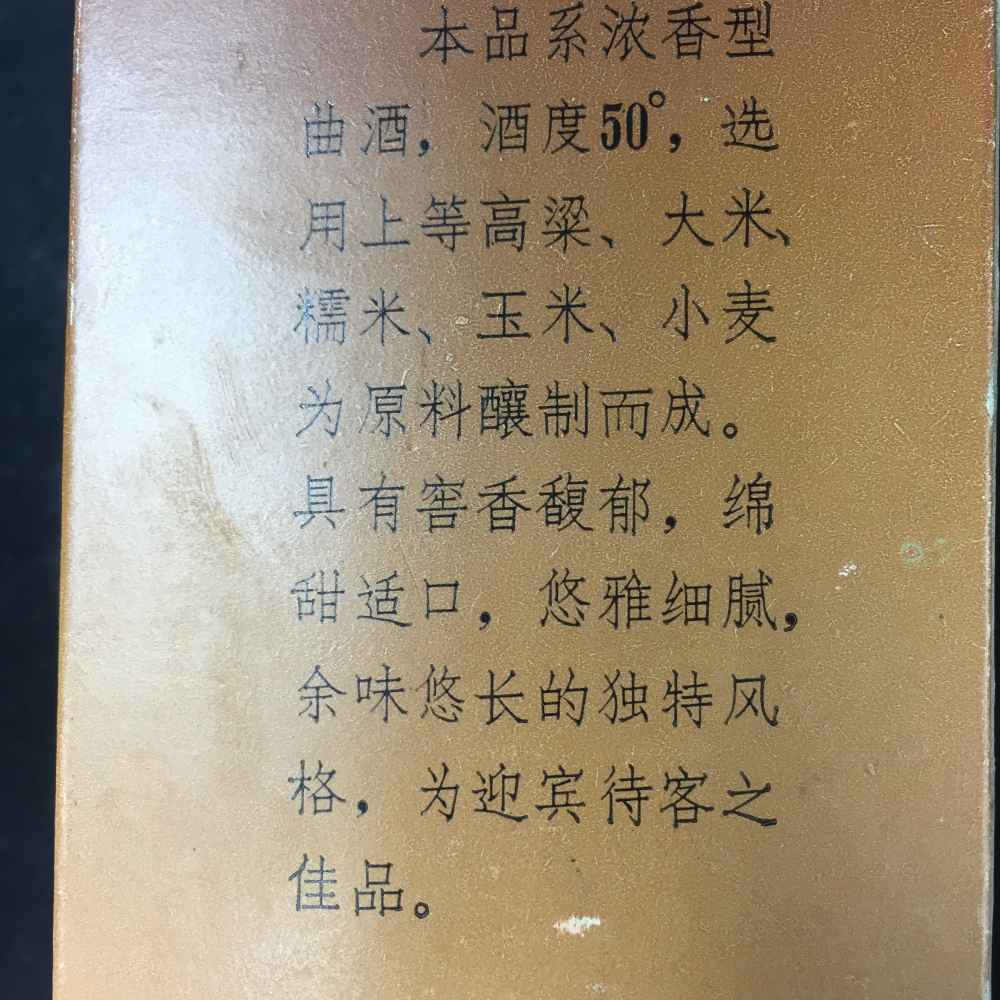 本品系浓香型
曲酒，酒度50°，选
用上等高粱、大米、
糯米、玉米、小麦
为原料酿制而成。
具有窖香馥郁，绵
甜适口，悠雅细腻，
余味悠长的独特风
格，为迎宾待客之
佳品。